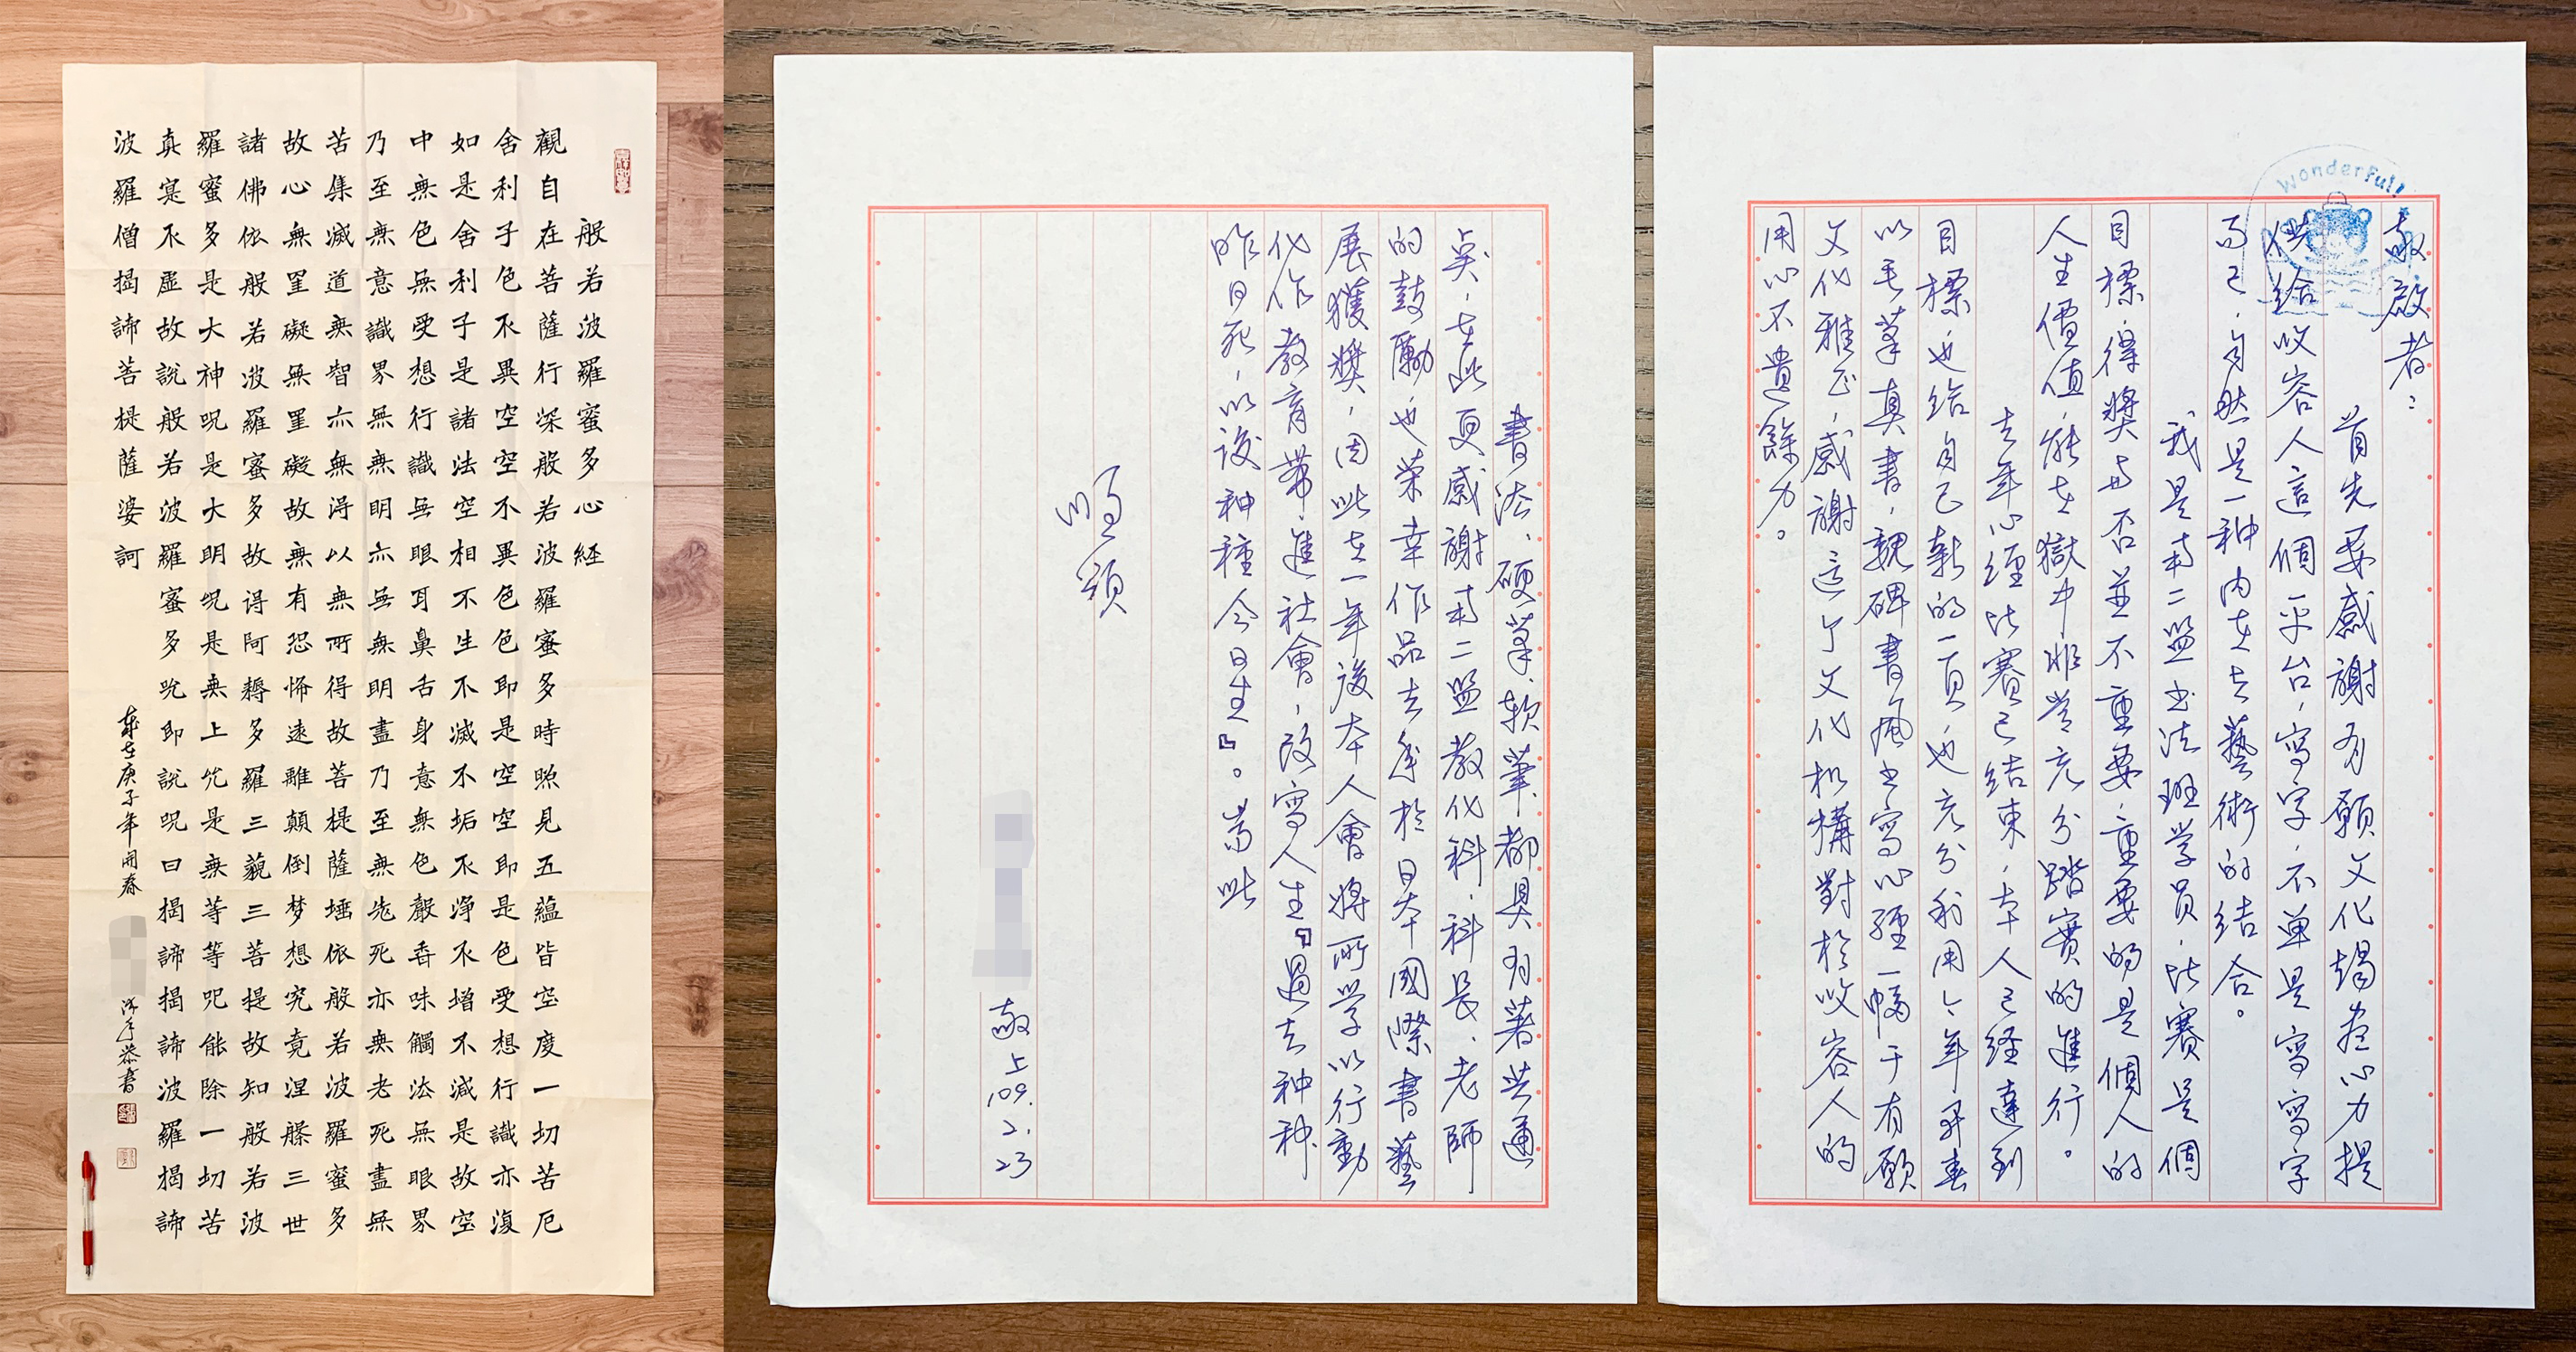 般若波羅蜜多心経
觀自在菩薩行深般若波羅蜜多時照見五蘊皆空度一切苦厄
舍利子色不異空空不異色色即是空空即是色受想行識亦復
如是舍利子是諸法空相不生不滅不垢不淨不增不減是故空
中無色無受想行識無眼耳鼻舌身意無色聲香味觸法無眼界
乃至無意識界無無明亦無無明盡乃至無老死亦無老死盡無
苦集滅道無智亦無得以無所得故菩提薩埵依般若波羅蜜多
故心無罣礙無罣礙故無有恐怖遠離顛倒梦想究竟涅槃三世
諸佛依般若波羅蜜多故得阿耨多羅三藐三菩提故知般若波
羅蜜多是大神呪是大明呪是無上呪是無等等呪能除一切苦
真寔不虛故說般若波羅蜜多呪即說呪曰揭諦揭諦波羅揭諦
波羅僧揭諦菩提薩婆訶
歲在庚子年開春
沐手恭書
Wonderful!
敬啟者：
首先要感謝有願文化竭盡心力提
供給收容人這個平台，寫字，不單是寫寫字
而已，自然是一种内在与藝術的結合。
我是南二監书法班学員，比賽是個
目標，得獎与否並不重要，重要的是個人的
人生價值，能在獄中非常充分踏實的進行。
去年心經比賽已結束，本人已经達到
目標，也給自己新的一頁，也充分利用今年開春
以毛筆真書，魏碑書風书寫心經一幅于有願
文化雅正，感謝這个文化机構對於收容人的
用心不遺餘力。
書法，硬筆，軟筆，都具有著共通
點，在此更感謝南二監教化科，科長，老師
的鼓勵也荣幸作品去年於日本國際書藝
展獲獎，因此在一年後本人會將所学以行動
化作教育帶進社會，改寫人生『過去种种，
昨日死，以後种種今日生』。耑此
順頌
敬上
109.2.23